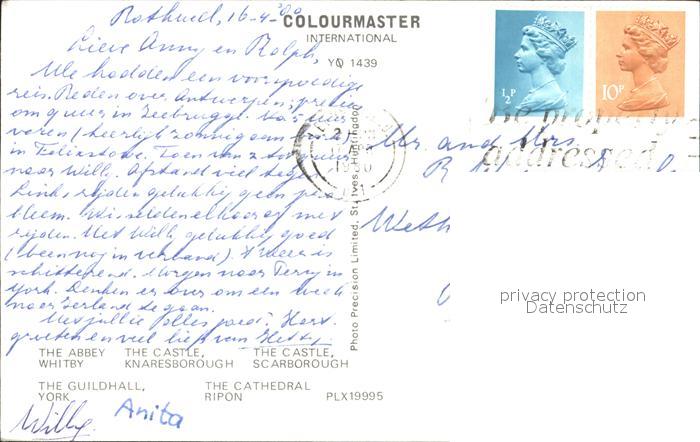 Rothwell, 16-4-'80
COLOURMASTER
INTERNATIONAL
YO 1439
½P
10P
Lieve Anny en Ralph,
We hadden een voorspoedige
reis. Reden over Antwerpen; precies
om 4 uur in Zeebrugge. Na 5 uur
varen (heerlijk zonnig aan boord)
in Felixstowe. Toen van 2 tot
naar Willy. Afstand viel tegen.
Links rijden gelukkig geen pro-
bleem. Wisselden elkaar af met
rijden. Met Willy gelukkig goed
(been nog in verband). 't Weer is
schitterend. Morgen naar Terry in
York. Denken er over om een week
naar Ierland te gaan.
Met jullie alles goed? Hart.
groeten en veel liefs van Hetty.
Mr. and Mrs.
R.
Weth
addressed
Photo Precision Limited, St. Ives, Huntingdon
privacy protection
Datenschutz
THE ABBEY THE CASTLE, THE CASTLE,
WHITBY KNARESBOROUGH SCARBOROUGH
THE GUILDHALL, THE CATHEDRAL
YORK RIPON PLX19995
Willy Anita